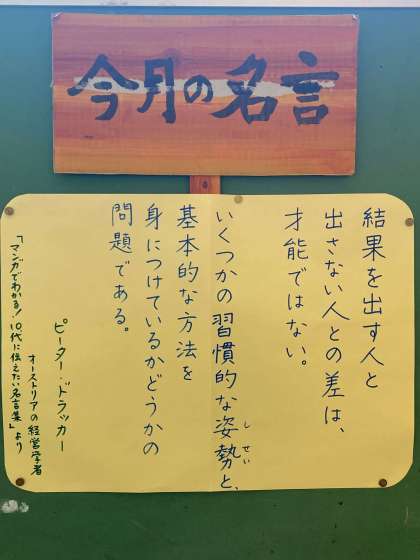 今月の名言
結果を出す人と
出さない人との差は、
才能ではない。
いくつかの習慣的な姿勢と、
しせい
基本的な方法を
身につけているかどうかの
問題である。
ピーター・ドラッカー
オーストリアの経営学者
「マンガでわかる!10代に伝えたい名言集」より